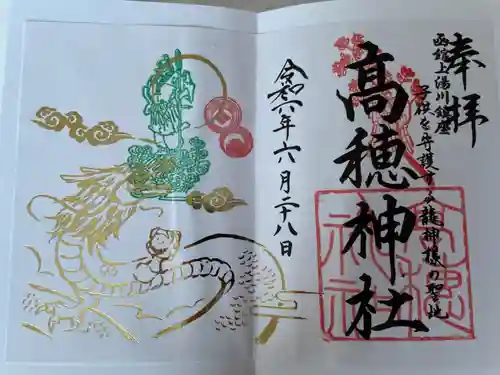 奉拝
函館上湯川鎮座
子供を守護する龍神様の聖地
髙穂神社
令和六年六月二十八日